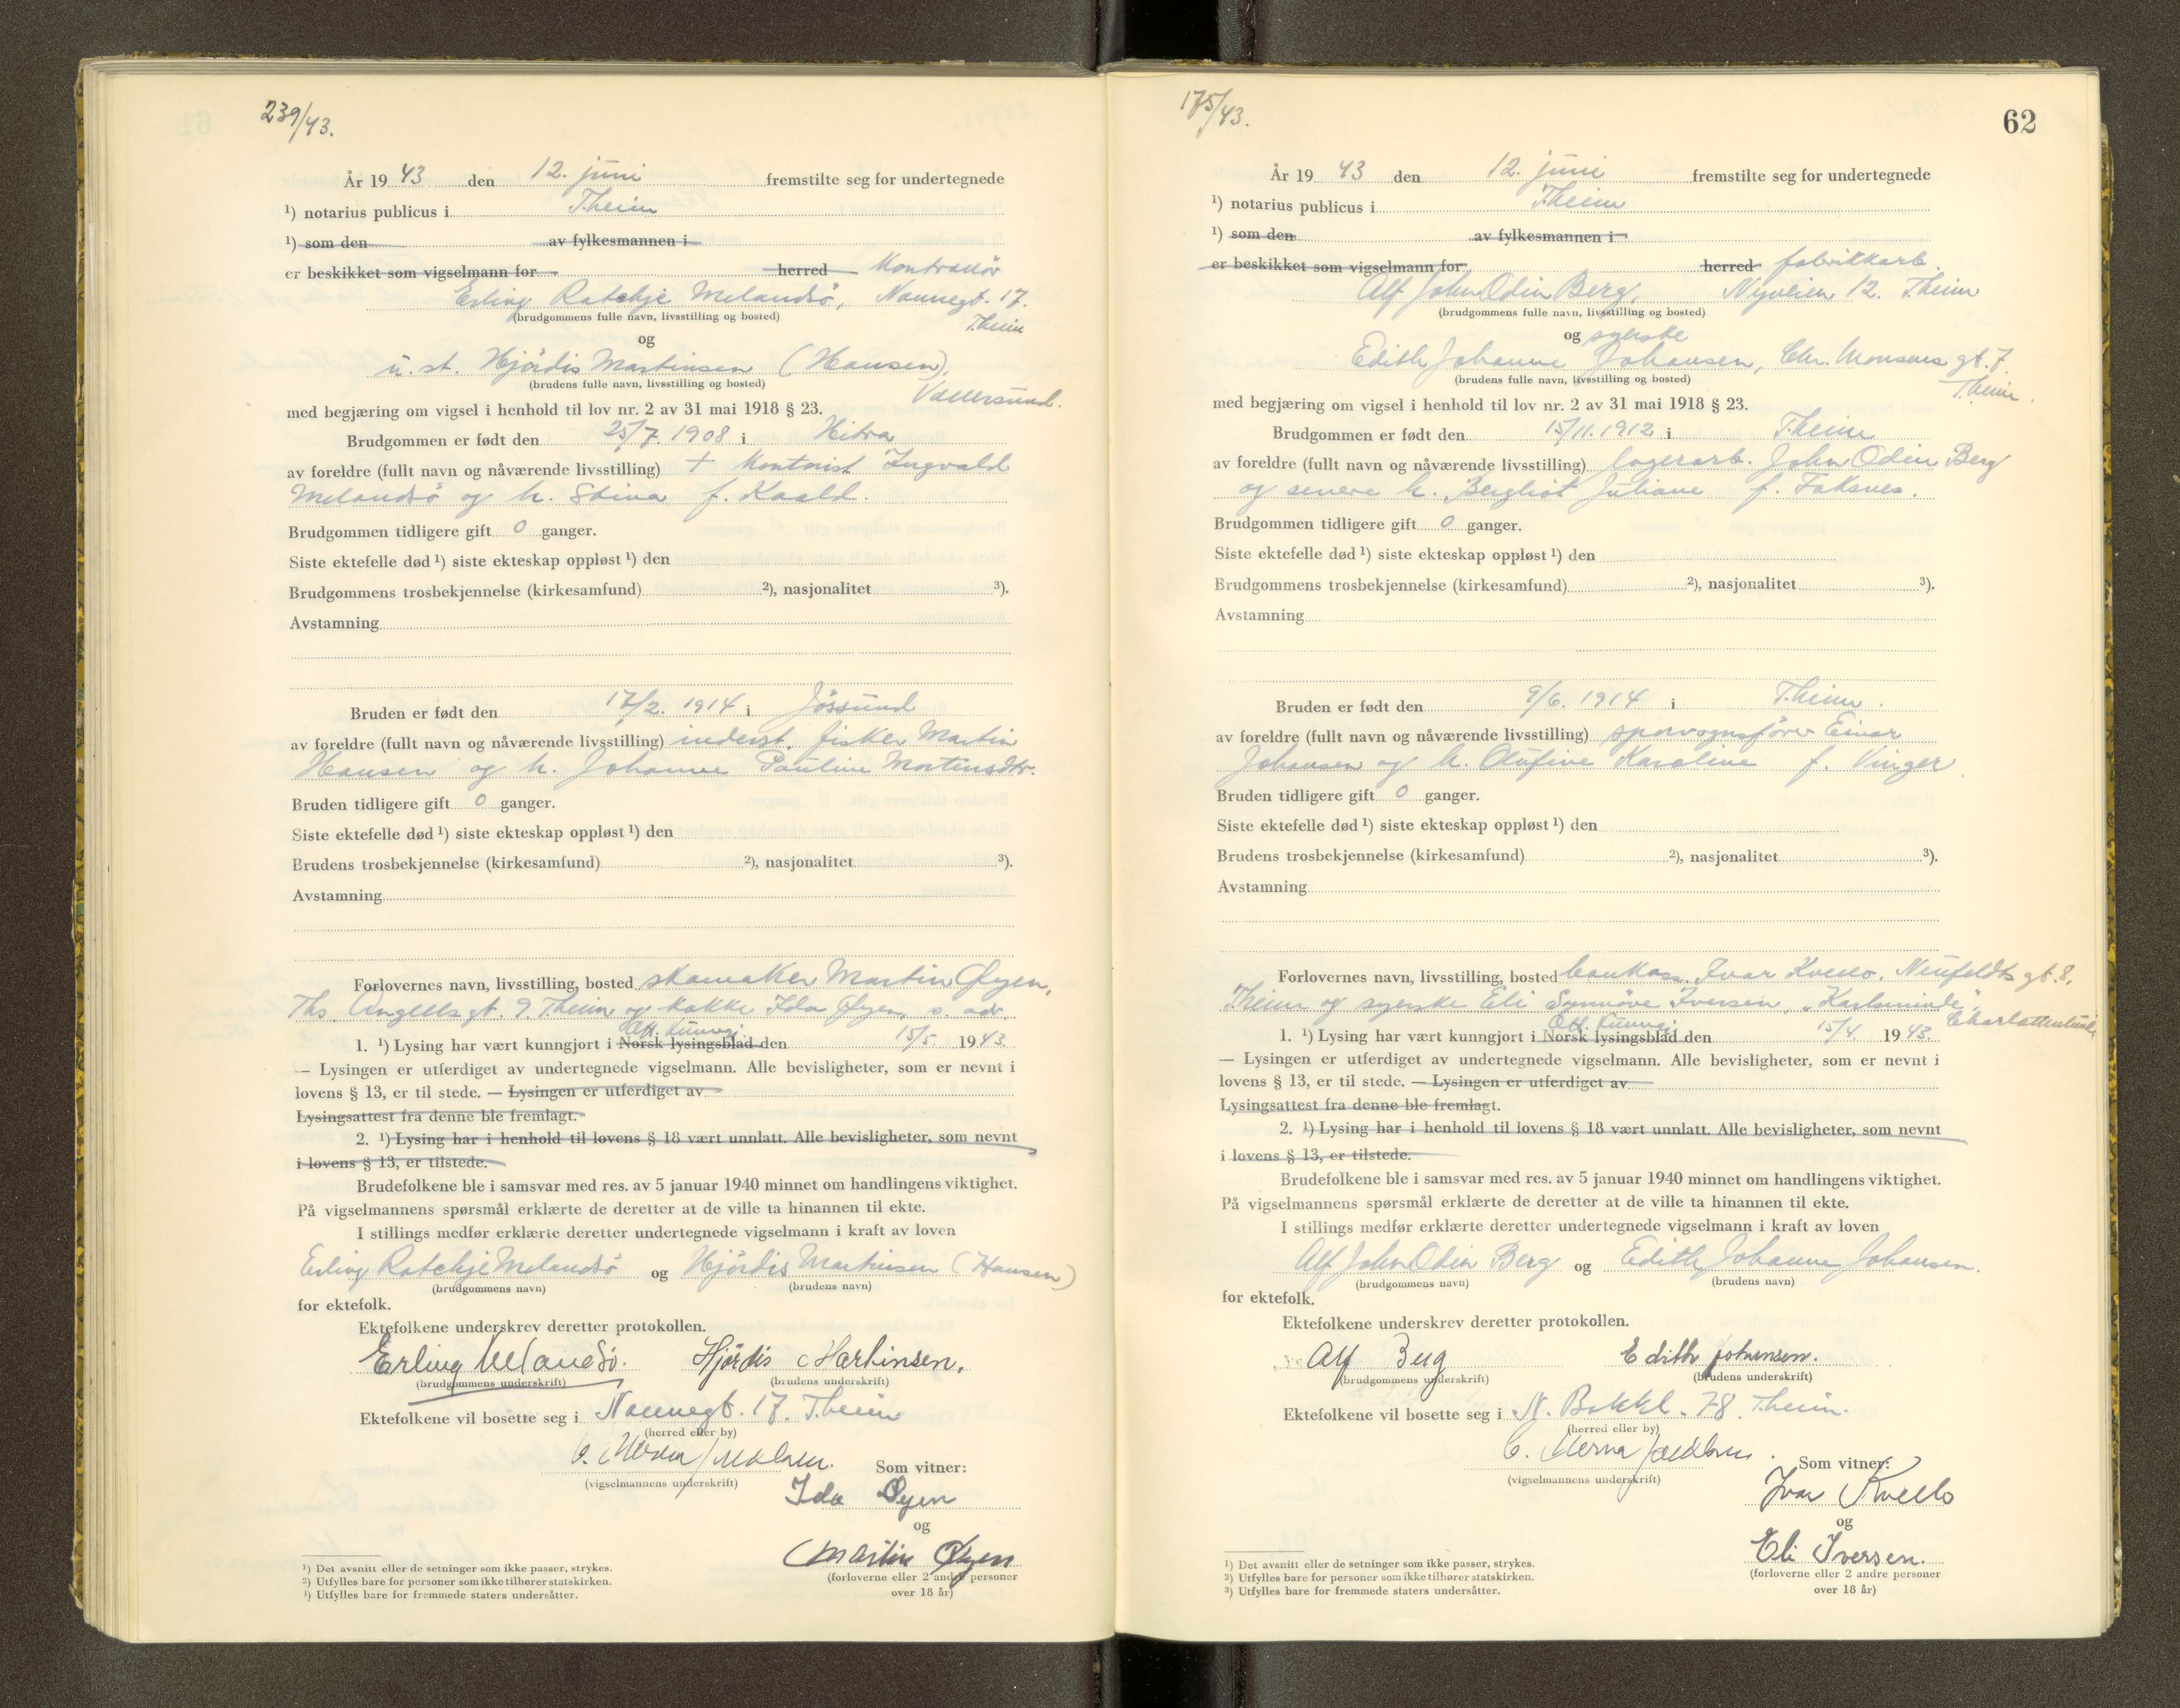 239/43.
År 19 43 den 12. juni fremstilte seg for undertegnede
¹) notarius publicus i T.heim
¹) som den av fylkesmannen i
er beskikket som vigselmann for herred Kontrollør
Erling Ratchje Melandsö, Nannegt. 17.
(brudgommens fulle navn, livsstilling og bosted)
T.heim
og
u. st. Hjördis Martinsen (Hansen),
(brudens fulle navn, livsstilling og bosted)
Vallersund.
med begjæring om vigsel i henhold til lov nr. 2 av 31 mai 1918 § 23.
Brudgommen er født den 25/7. 1908 i Hitra
av foreldre (fullt navn og nåværende livsstilling) + Kontorist Ingvald
Melandsö og h. Stina f. Kaald.
Brudgommen tidligere gift 0 ganger.
Siste ektefelle død ¹) siste ekteskap oppløst ¹) den
Brudgommens trosbekjennelse (kirkesamfund) ²), nasjonalitet ³).
Avstamning
Bruden er født den 17/2. 1914 i Jössund
av foreldre (fullt navn og nåværende livsstilling) inderst, fisker Martin
Hansen og h. Johanne Pauline Mortensdtr.
Bruden tidligere gift 0 ganger.
Siste ektefelle død ¹) siste ekteskap oppløst ¹) den
Brudens trosbekjennelse (kirkesamfund) ²), nasjonalitet ³).
Avstamning
Forlovernes navn, livsstilling, bosted skomaker Martin Øyen,
Ths. Angells gt. 9. T.heim og kokke Ida Øyen, s. adr.
Off. kunngj.
1. ¹) Lysing har vært kunngjort i Norsk lysingsblad den 15/5. 19 43
— Lysingen er utferdiget av undertegnede vigselmann. Alle bevisligheter, som er nevnt i
lovens § 13, er til stede. — Lysingen er utferdiget av
Lysingsattest fra denne ble fremlagt.
2. ¹) Lysing har i henhold til lovens § 18 vært unnlatt. Alle bevisligheter, som nevnt
i lovens § 13, er tilstede.
Brudefolkene ble i samsvar med res. av 5 januar 1940 minnet om handlingens viktighet.
På vigselmannens spørsmål erklærte de deretter at de ville ta hinannen til ekte.
I stillings medfør erklærte deretter undertegnede vigselmann i kraft av loven
Erling Ratchje Melandsö og Hjördis Martinsen (Hansen)
(brudgommens navn) (brudens navn)
for ektefolk.
Ektefolkene underskrev deretter protokollen.
Erling Melandsö. Hjördis Martinsen.
(brudgommens underskrift) (brudens underskrift)
Ektefolkene vil bosette seg i Nannegt. 17. T.heim
(herred eller by)
(vigselmannens underskrift)
Som vitner:
Ida Øyen
og
Martin Øyen
(forloverne eller 2 andre personer
over 18 år)
¹) Det avsnitt eller de setninger som ikke passer, strykes.
²) Utfylles bare for personer som ikke tilhører statskirken.
³) Utfylles bare for fremmede staters undersåtter.
175/43.
62
År 19 43 den 12. juni fremstilte seg for undertegnede
¹) notarius publicus i T.heim
¹) som den av fylkesmannen i
er beskikket som vigselmann for herred fabrikkarb.
Alf John Odin Berg, Nyveien 12. T.heim
(brudgommens fulle navn, livsstilling og bosted)
og syerske
Edith Johanne Johansen, Chr. Monsens gt. 7.
(brudens fulle navn, livsstilling og bosted)
T.heim.
med begjæring om vigsel i henhold til lov nr. 2 av 31 mai 1918 § 23.
Brudgommen er født den 15/11. 1912 i T.heim
av foreldre (fullt navn og nåværende livsstilling) lagerarb. John Odin Berg
og senere h. Bergliot Juliane f. Faksnes.
Brudgommen tidligere gift 0 ganger.
Siste ektefelle død ¹) siste ekteskap oppløst ¹) den
Brudgommens trosbekjennelse (kirkesamfund) ²), nasjonalitet ³).
Avstamning
Bruden er født den 9/6. 1914 i T.heim.
av foreldre (fullt navn og nåværende livsstilling) sporvognsfører Einar
Johansen og h. Olufine Karoline f. Vinger
Bruden tidligere gift 0 ganger.
Siste ektefelle død ¹) siste ekteskap oppløst ¹) den
Brudens trosbekjennelse (kirkesamfund) ²), nasjonalitet ³).
Avstamning
Forlovernes navn, livsstilling, bosted bankass. Ivar Kvello. Neufeldts gt. 8.
T.heim og syerske Eli Synnöve Iversen, „Karlsminde"
Off. kunngj. Charlottenlund
1. ¹) Lysing har vært kunngjort i Norsk lysingsblad den 15/4. 19 43.
— Lysingen er utferdiget av undertegnede vigselmann. Alle bevisligheter, som er nevnt i
lovens § 13, er til stede. — Lysingen er utferdiget av
Lysingsattest fra denne ble fremlagt.
2. ¹) Lysing har i henhold til lovens § 18 vært unnlatt. Alle bevisligheter, som nevnt
i lovens § 13, er tilstede.
Brudefolkene ble i samsvar med res. av 5 januar 1940 minnet om handlingens viktighet.
På vigselmannens spørsmål erklærte de deretter at de ville ta hinannen til ekte.
I stillings medfør erklærte deretter undertegnede vigselmann i kraft av loven
Alf John Odin Berg og Edith Johanne Johansen.
(brudgommens navn) (brudens navn)
for ektefolk.
Ektefolkene underskrev deretter protokollen.
Alf Berg Edith Johansen.
(brudgommens underskrift) (brudens underskrift)
Ektefolkene vil bosette seg i N. Bakkl. 78. T.heim.
(herred eller by)
(vigselmannens underskrift)
Som vitner:
Ivar Kvello
og
Eli Iversen.
(forloverne eller 2 andre personer
over 18 år)
¹) Det avsnitt eller de setninger som ikke passer, strykes.
²) Utfylles bare for personer som ikke tilhører statskirken.
³) Utfylles bare for fremmede staters undersåtter.